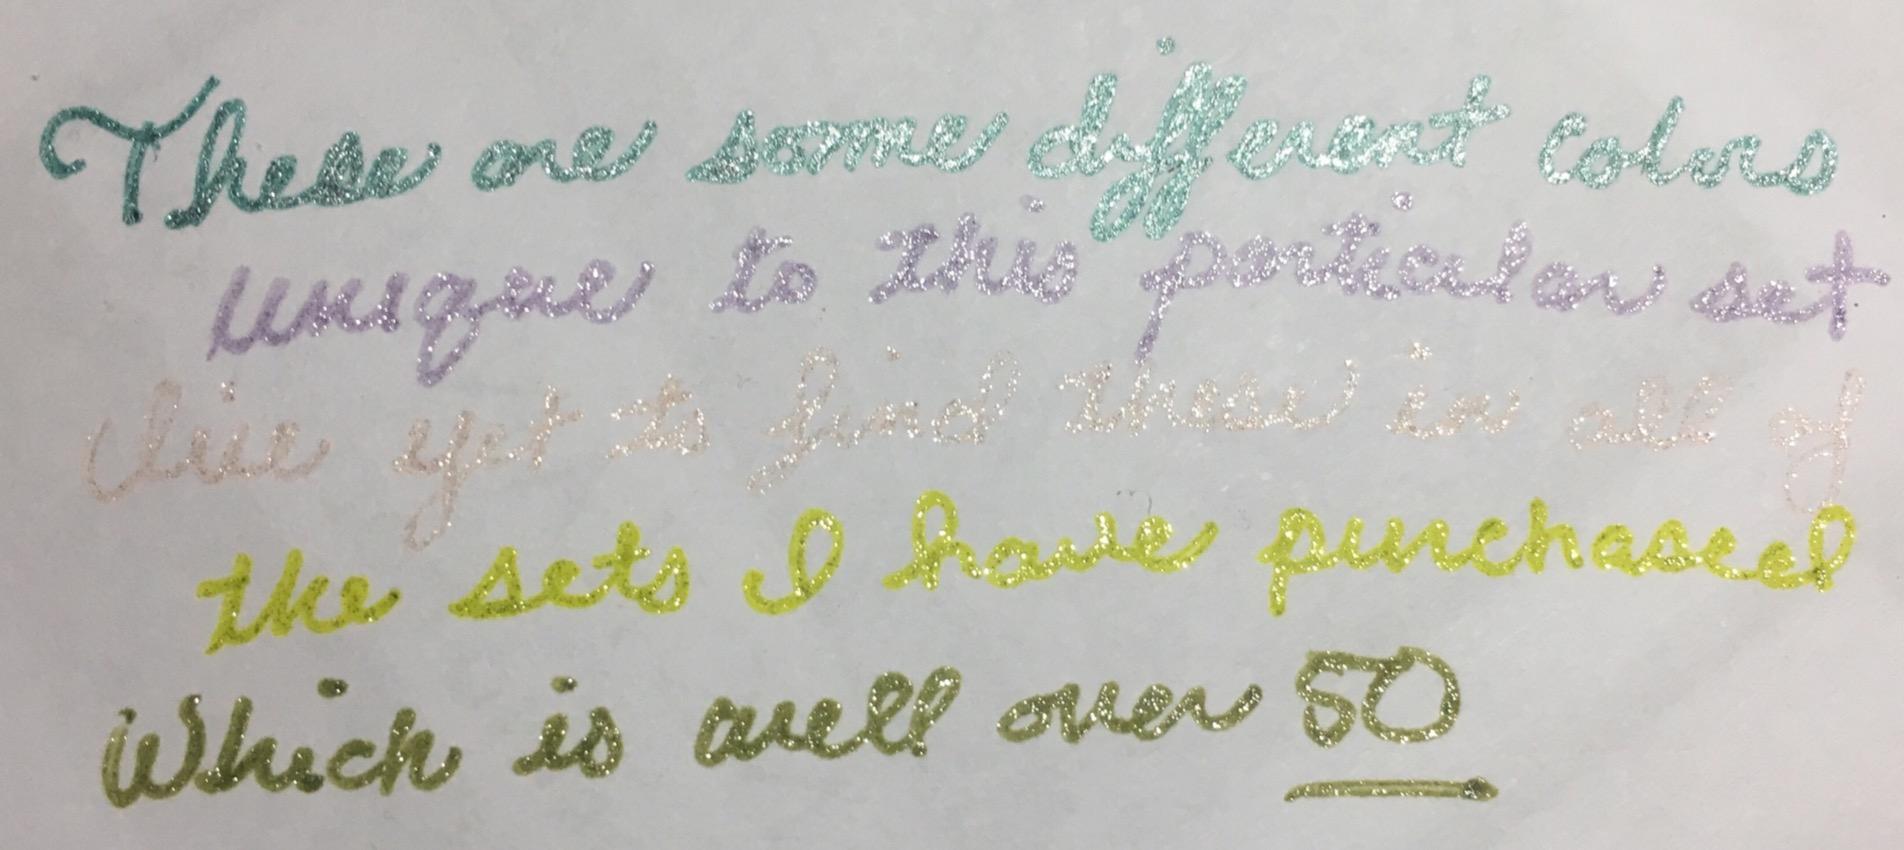 These are some different colors
unique to this particular set
I've yet to find these in all of
the sets I have purchased
Which is well over 50